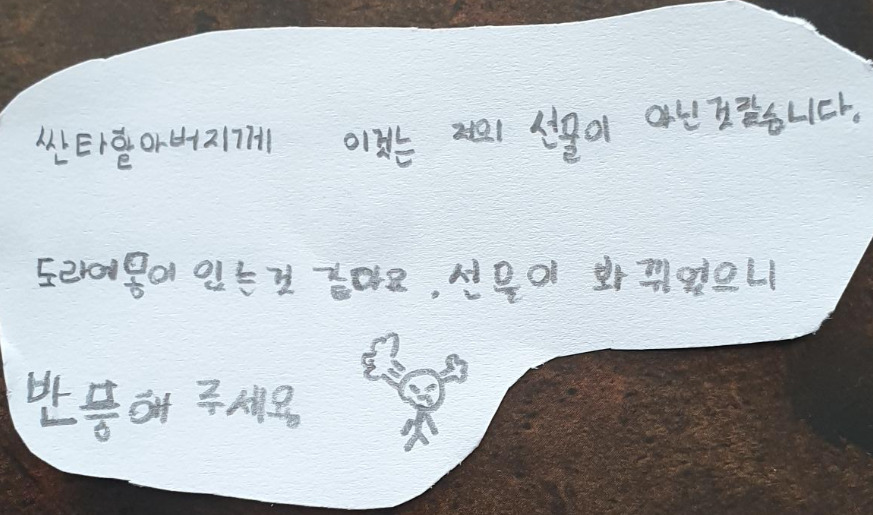 싼타할아버지께 이겄는 저의 선물이 아닌것갈습니다.
도라에몽이 있는것 같마요. 선물이 봐뀌었으니
반풍해 주세요